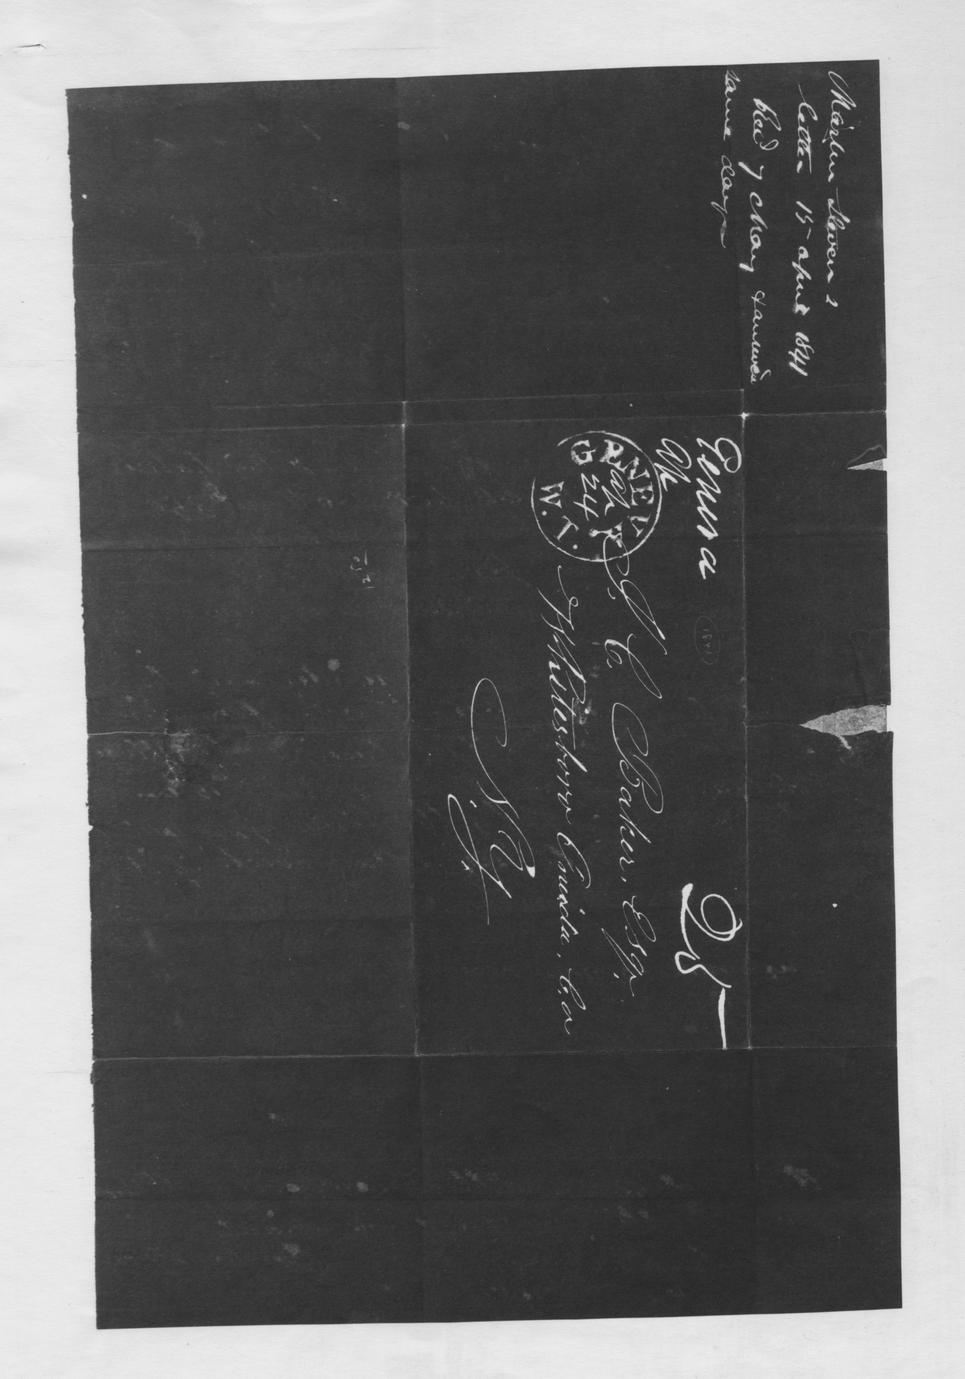 Martin Steven s
letter 15 april 1841
Recd 7 May & answerd
same day
Geneva
Ap
GENEV
Ap
24
W.T.
25
S. C. Baker, Esqr.
Whitesboro Oneida, Co
N.Y.
1841